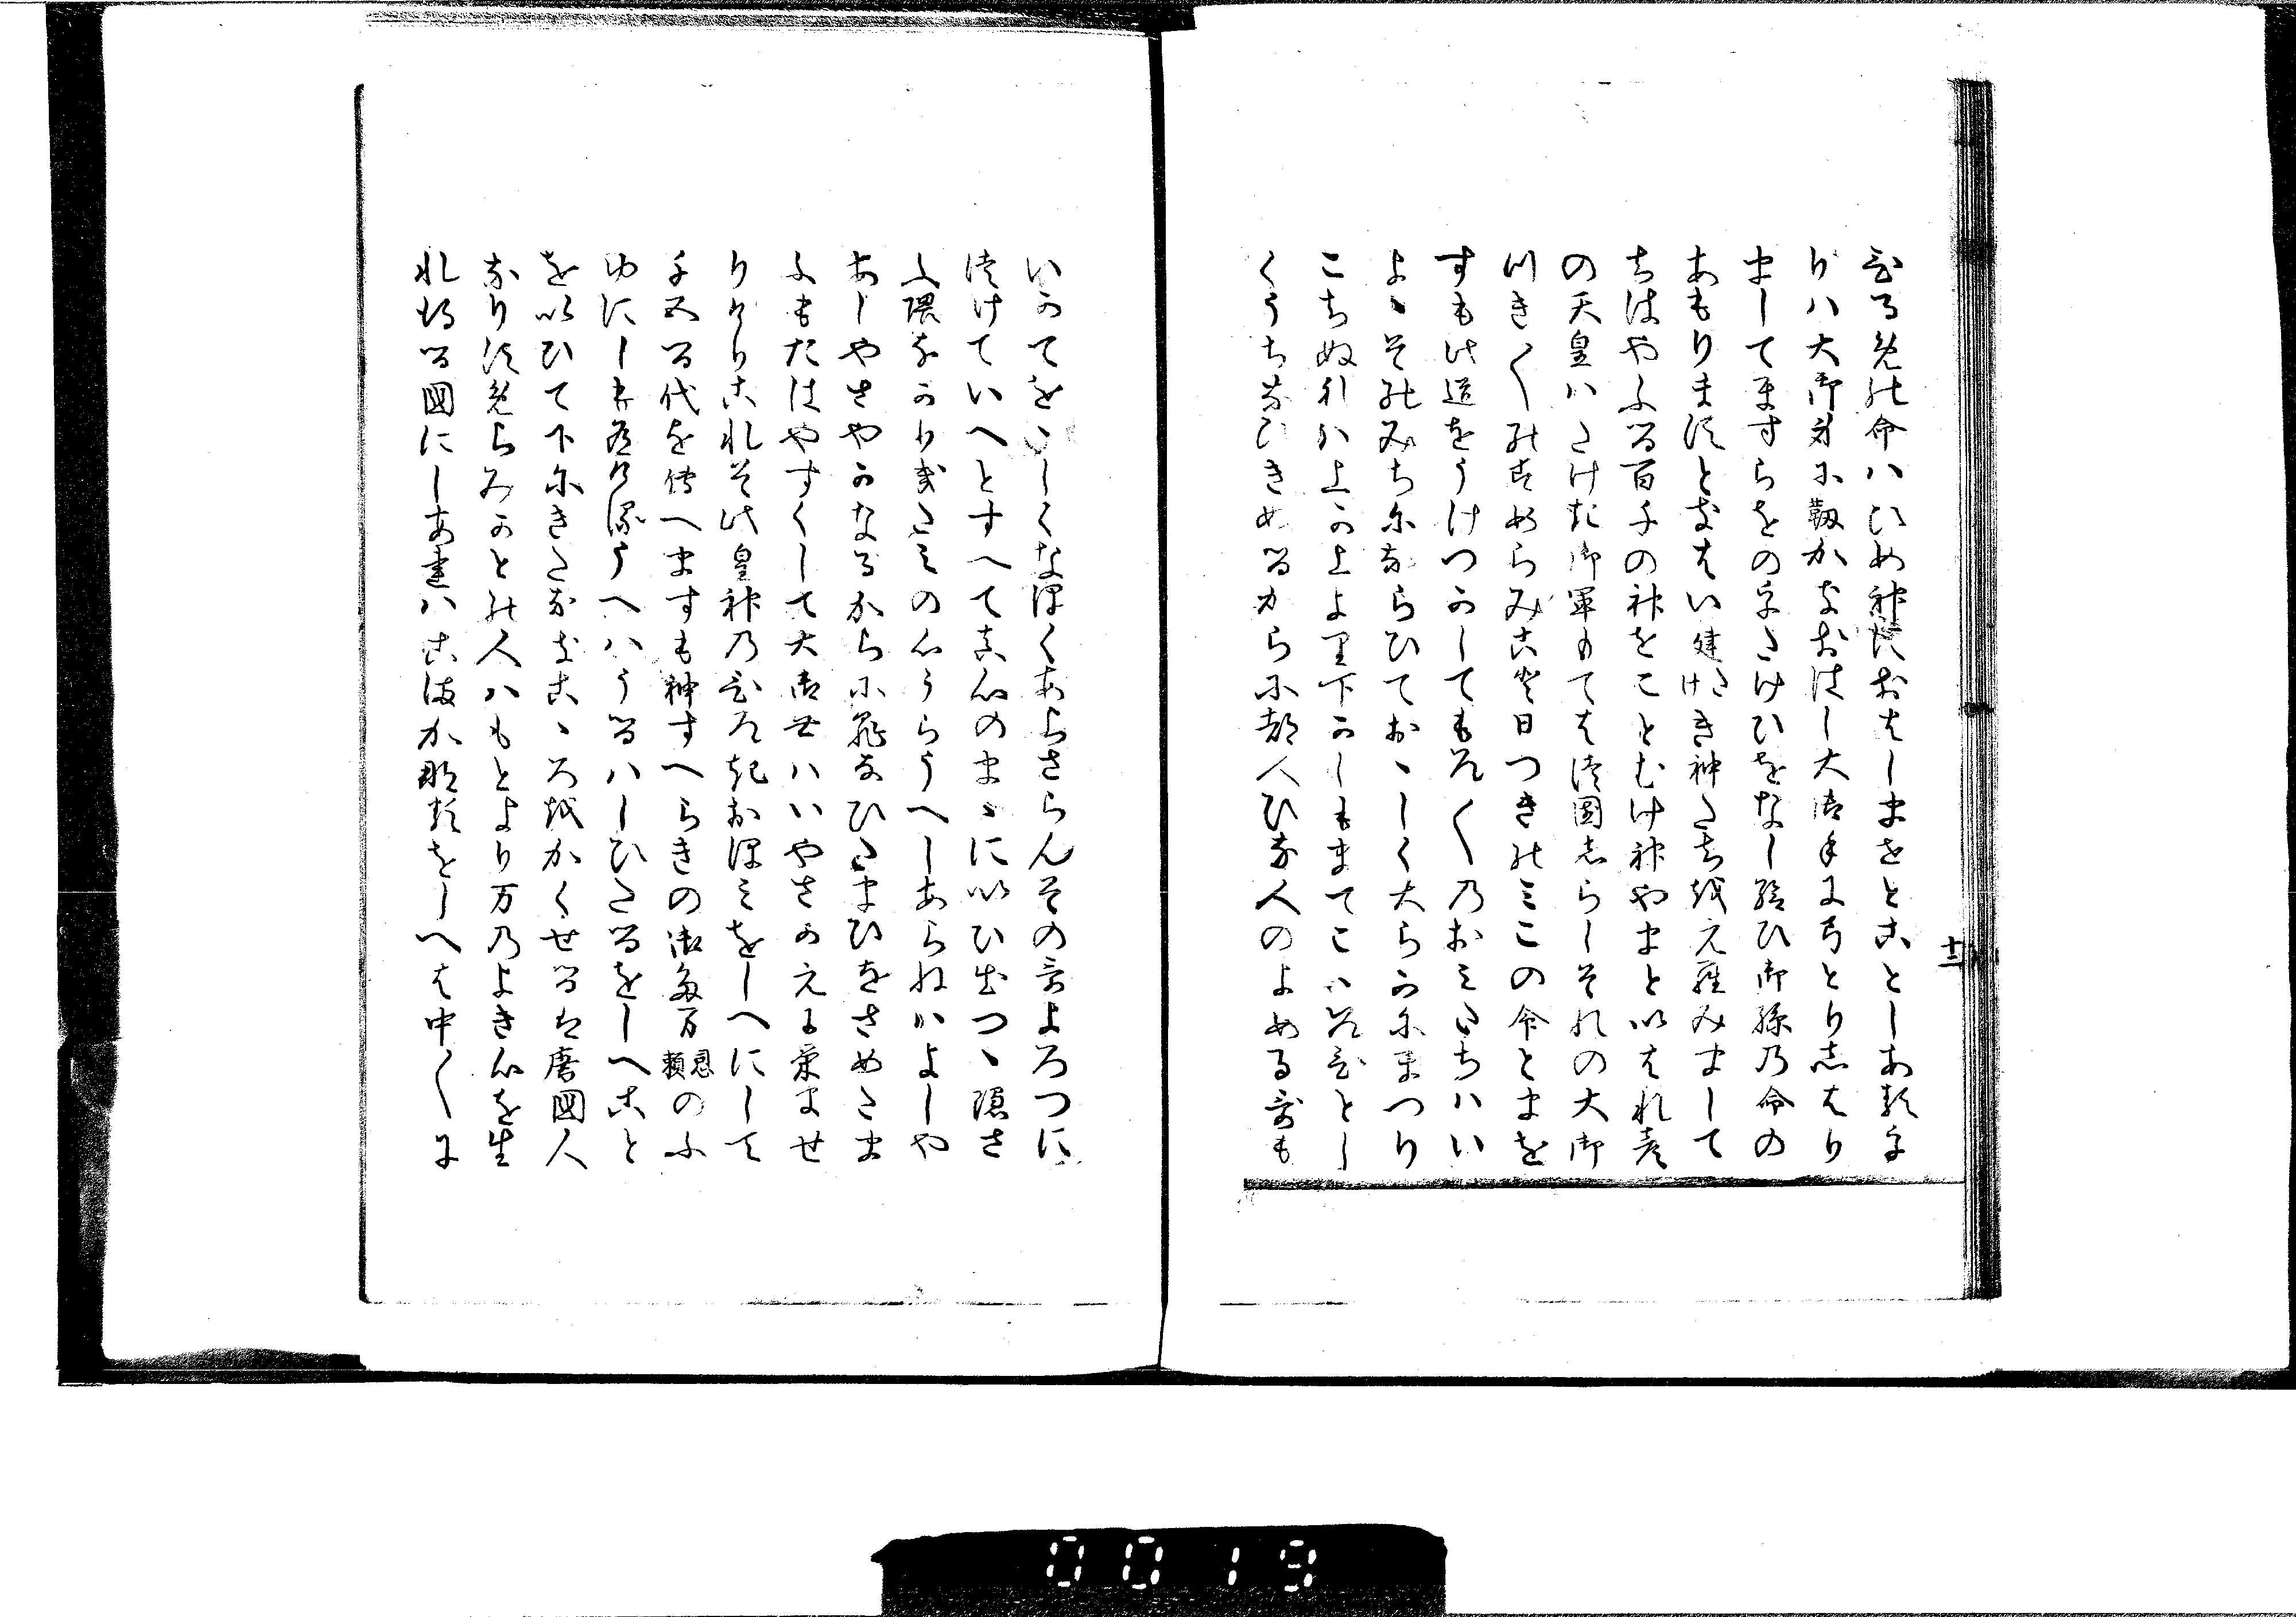 ひるめの命ハひめ神におはしませとことしある時
ハ大御身に靱かきおはし大御手に弓とりしはり
ましてますらをの手たけひをなし給ひ御孫の命の
あもりますときはい建けき神たちをえらみまして
ちはやふる百千の神をことむけ神やまといはれ彦
の天皇ハたけた御軍もてはつ国しらしそれの大御
つき〱のすめらみこと日つきのみこの命とまを
すも此道をうけつかしてもろ〱のおみたちハい
よゝそのみちにならひておゝしく大らかにまつり
こちぬれハ上か上より下かしもまてこゝろひとし
くうちなひきぬるからに都人ひな人のよめる哥も
十三
いかてをゝしくなほくあらさらんその哥よろつに
つけていへとすへて真心のまゝにいひ出つゝ隠さ
ふ隈なかりきたみの心うらうへしあらねハよしや
あしやさやかなるからに罪なひたまひをさめたま
ふもたはやすくして大御世ハいやさかえに栄ませ
りけりこれそ此皇神のひろきおほみをしへにして
千五百代を伝へますも神すへらきの御多万恩頼のふ
ゆにしあなるうへハうるハしひたるをしへこと
をいひて下にきたなきこゝろをかくせるは唐国人
なりすめらみかとの人ハもとより万のよき心を生
れ得る国にしあれハこまかなるをしへは中〱に